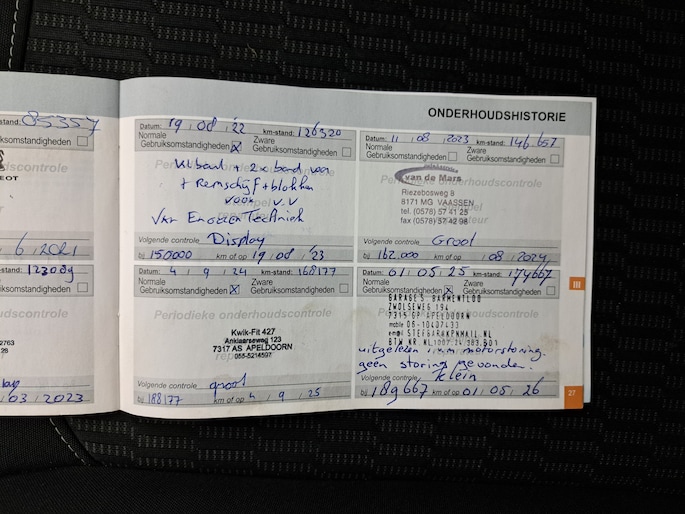 ONDERHOUDSHISTORIE
stand: 85357
ksomstandigheden
odieke onderhoudscontrole
EOT
6 2021
stand: 123089
ksomstandigheden
onderhoudscontrole
2763
28
03 2023
Datum: 19 08 '22 km-stand: 126320
Normale Zware
Gebruiksomstandigheden Gebruiksomstandigheden
+ Remschijf + blokken
voor v.v
Van Emotion Techniek
Volgende controle Display
bij 150000 km of op 19 08 '23
Datum: 11 08 2023 km-stand: 146.657
Normale Zware
Gebruiksomstandigheden Gebruiksomstandigheden
Periodieke onderhoudscontrole
van de Mars
Riezebosweg 8
8171 MG VAASSEN
tel. (0578) 57 41 25
fax (0578) 57 42 98
Volgende controle Groot
bij 162.000 km of op 08 2024
Datum: 4 9 '24 km-stand: 168177
Normale Zware
Gebruiksomstandigheden Gebruiksomstandigheden
Periodieke onderhoudscontrole
Kwik-Fit 427
Anklaarseweg 123
7317 AS APELDOORN
055-5214597
Volgende controle groot
bij 188177 km of op 4 9 '25
Datum: 01 05 '25 km-stand: 179667
Normale Zware
Gebruiksomstandigheden Gebruiksomstandigheden
GARAGE S. BARMENTLOO
ZWOLSEWEG 194
7315 GP APELDOORN
mobile 06-10407433
uitgelezen i.v.m motorstoring.
geen storing gevonden.
Volgende controle klein
bij 189667 km of op 01 05 '26
III
27